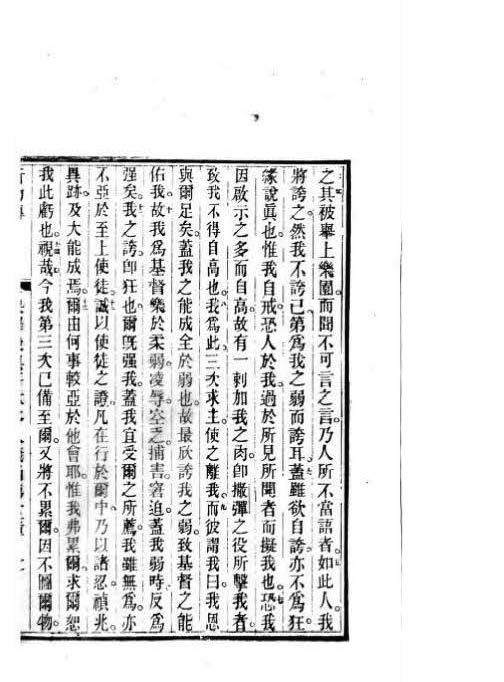 之其被舉上樂園而聞不可言之言乃人所不當語者如此人我
將誇之然我不誇己第為我之弱而誇耳蓋雖欲自誇亦不為狂
緣說眞也惟我自戒恐人於我過於所見所聞者而擬我也恐我
因啟示之多而自高故有一刺加我之肉卽撒彈之役所擊我者
致我不得自高也我為此三次求主使之離我而彼謂我曰我恩
與爾足矣蓋我之能成全於弱也故最欣誇我之弱致基督之能
佑我故我爲基督樂於柔弱凌辱空乏捕害窘迫蓋我弱時反爲
强矣我之誇卽狂也爾旣强我蓋我宜受爾之所薦我雖無爲亦
不亞於至上使徒誠以使徒之證凡在行於爾中乃以諸忍禎兆
異跡及大能成焉爾由何事較亞於他會耶惟我弗累爾求爾恕
我此虧也視哉今我第三次已備至爾又將不累爾因不圖爾物